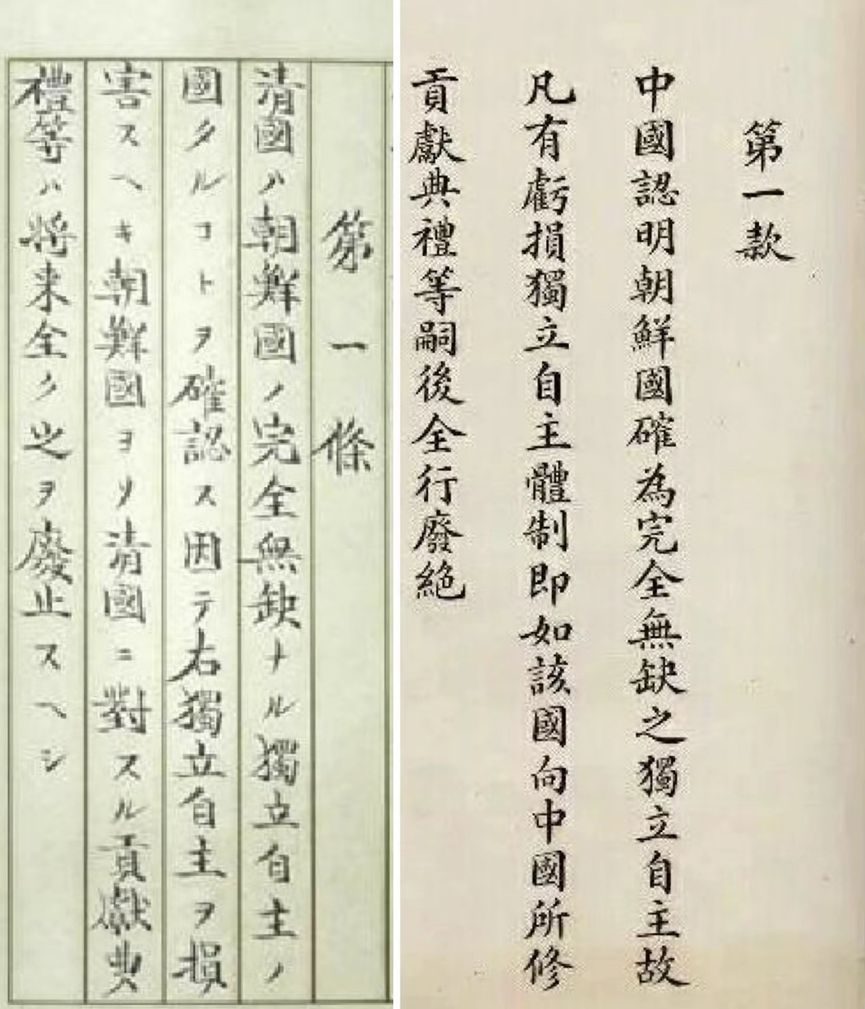 第一款
中國認明朝鮮國確為完全無缺之獨立自主故
凡有虧損獨立自主體制即如該國向中國所修
貢獻典禮等嗣後全行廢絕
第一條
清國ハ朝鮮國ノ完全無缺ナル獨立自主ノ
國タルコトヲ確認ス因テ右獨立自主ヲ損
害スヘキ朝鮮國ヨリ清國ニ對スル貢獻典
禮等ハ将来全ク之ヲ廢止スヘシ